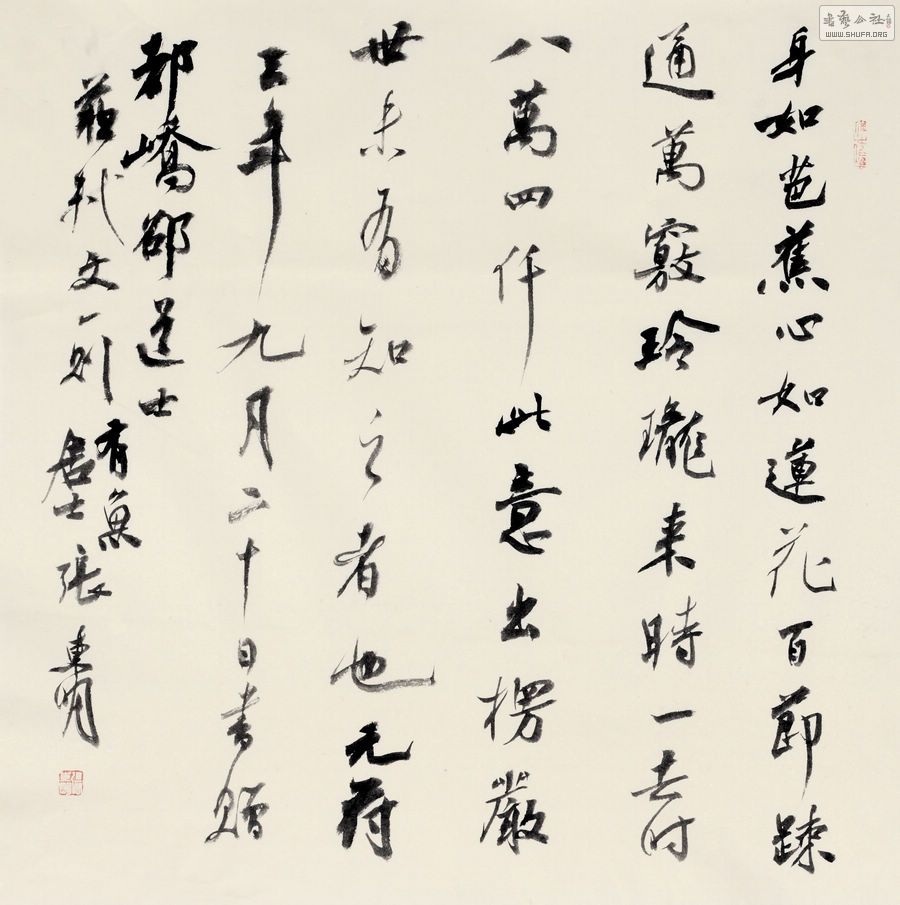 身如芭蕉心如蓮花百節踈
通萬竅玲瓏来時一去时
八萬四仟此意出楞嚴
世未有知之者也元符
三年九月二十日書贈
都嶠邵道士
蘇軾文一則
有魚
居士張東明
書藝公社
WWW.SHUFA.ORG